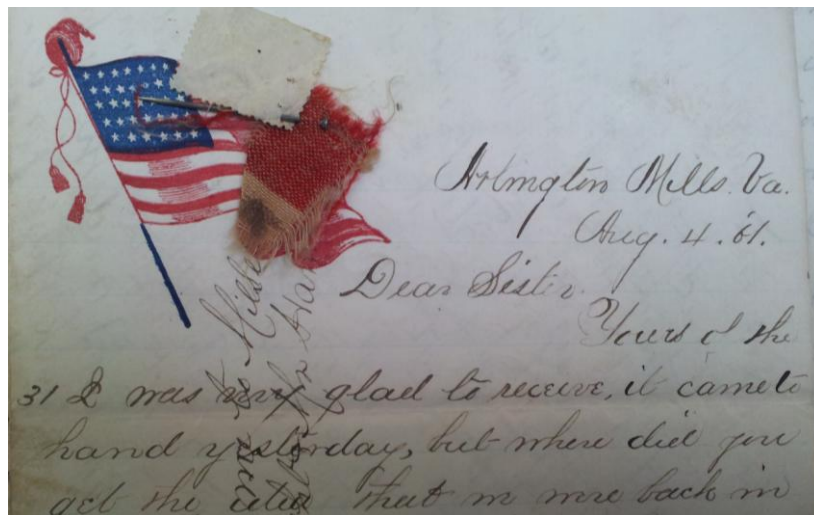 Arlington Mills. Va.
Aug. 4. 61.
Dear Sister.
Yours of the
31 I was very glad to receive, it came to
hand yesterday, but where did you
get the idea that we were back in